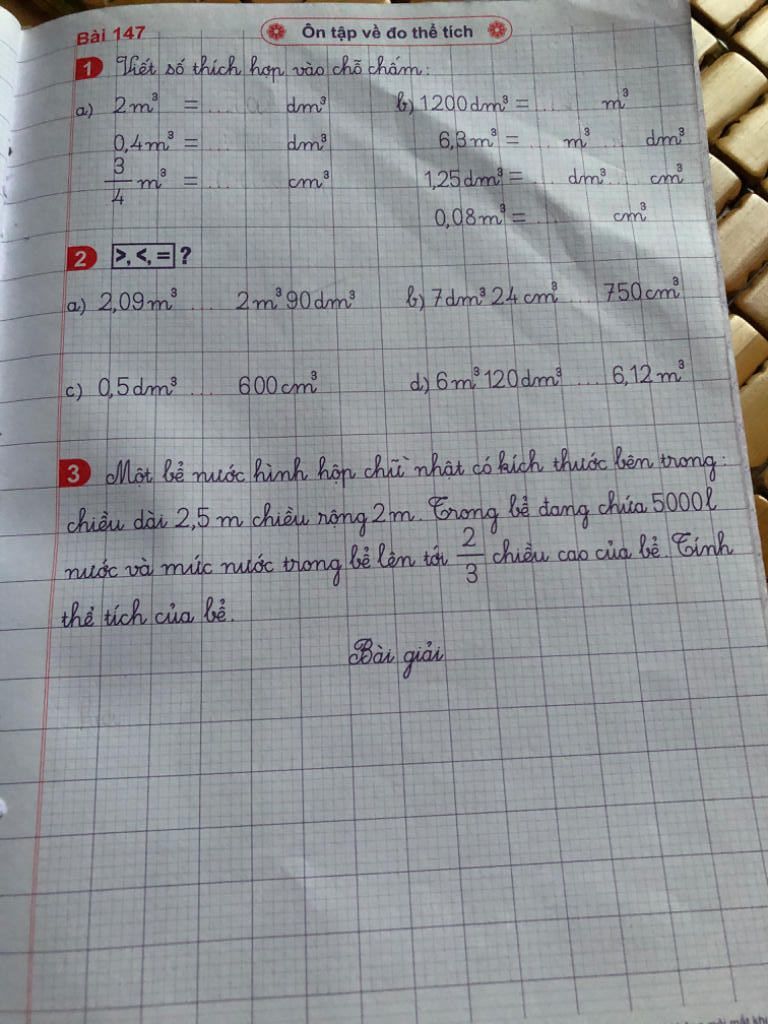 Bài 147
Ôn tập về đo thể tích
1 Viết số thích hợp vào chỗ chấm:
a) 2m³ = .... dm³ b) 1200dm³ = .... m³
0,4m³ = .... dm³ 6,3m³ = .... m³ .... dm³
3/4 m³ = .... cm³ 1,25dm³ = .... dm³ .... cm³
0,08m³ = .... cm³
2 >, <, = ?
a) 2,09m³ .... 2m³ 90dm³ b) 7dm³ 24cm³ .... 750cm³
c) 0,5dm³ .... 600cm³ d) 6m³ 120dm³ .... 6,12m³
3 Một bể nước hình hộp chữ nhật có kích thước bên trong:
chiều dài 2,5m chiều rộng 2m. Trong bể đang chứa 5000l
nước và mức nước trong bể lên tới 2/3 chiều cao của bể. Tính
thể tích của bể.
Bài giải